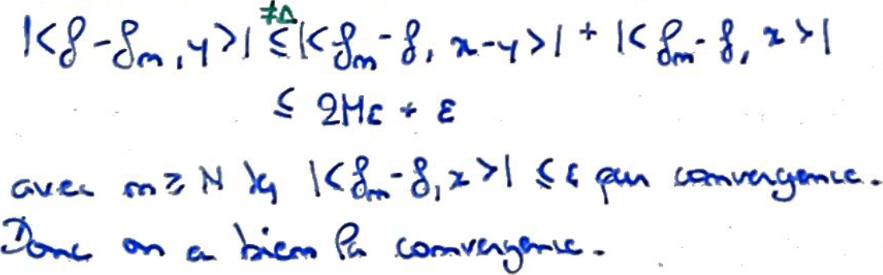 |<f-fn,y>| ≤ |<fn-f, x-y>| + |<fn-f, x>|
≠Δ
≤ 2Mε + ε
avec n ≥ N tq |<fn-f,x>| ≤ ε par convergence.
Donc on a bien la convergence.